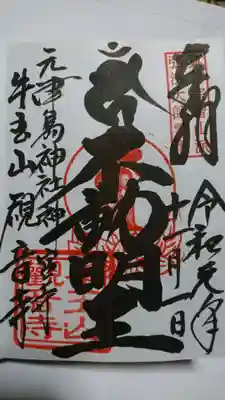 奉拝
令和元年
月一日
不動明王
元津島神社神宮寺
牛玉山観音寺